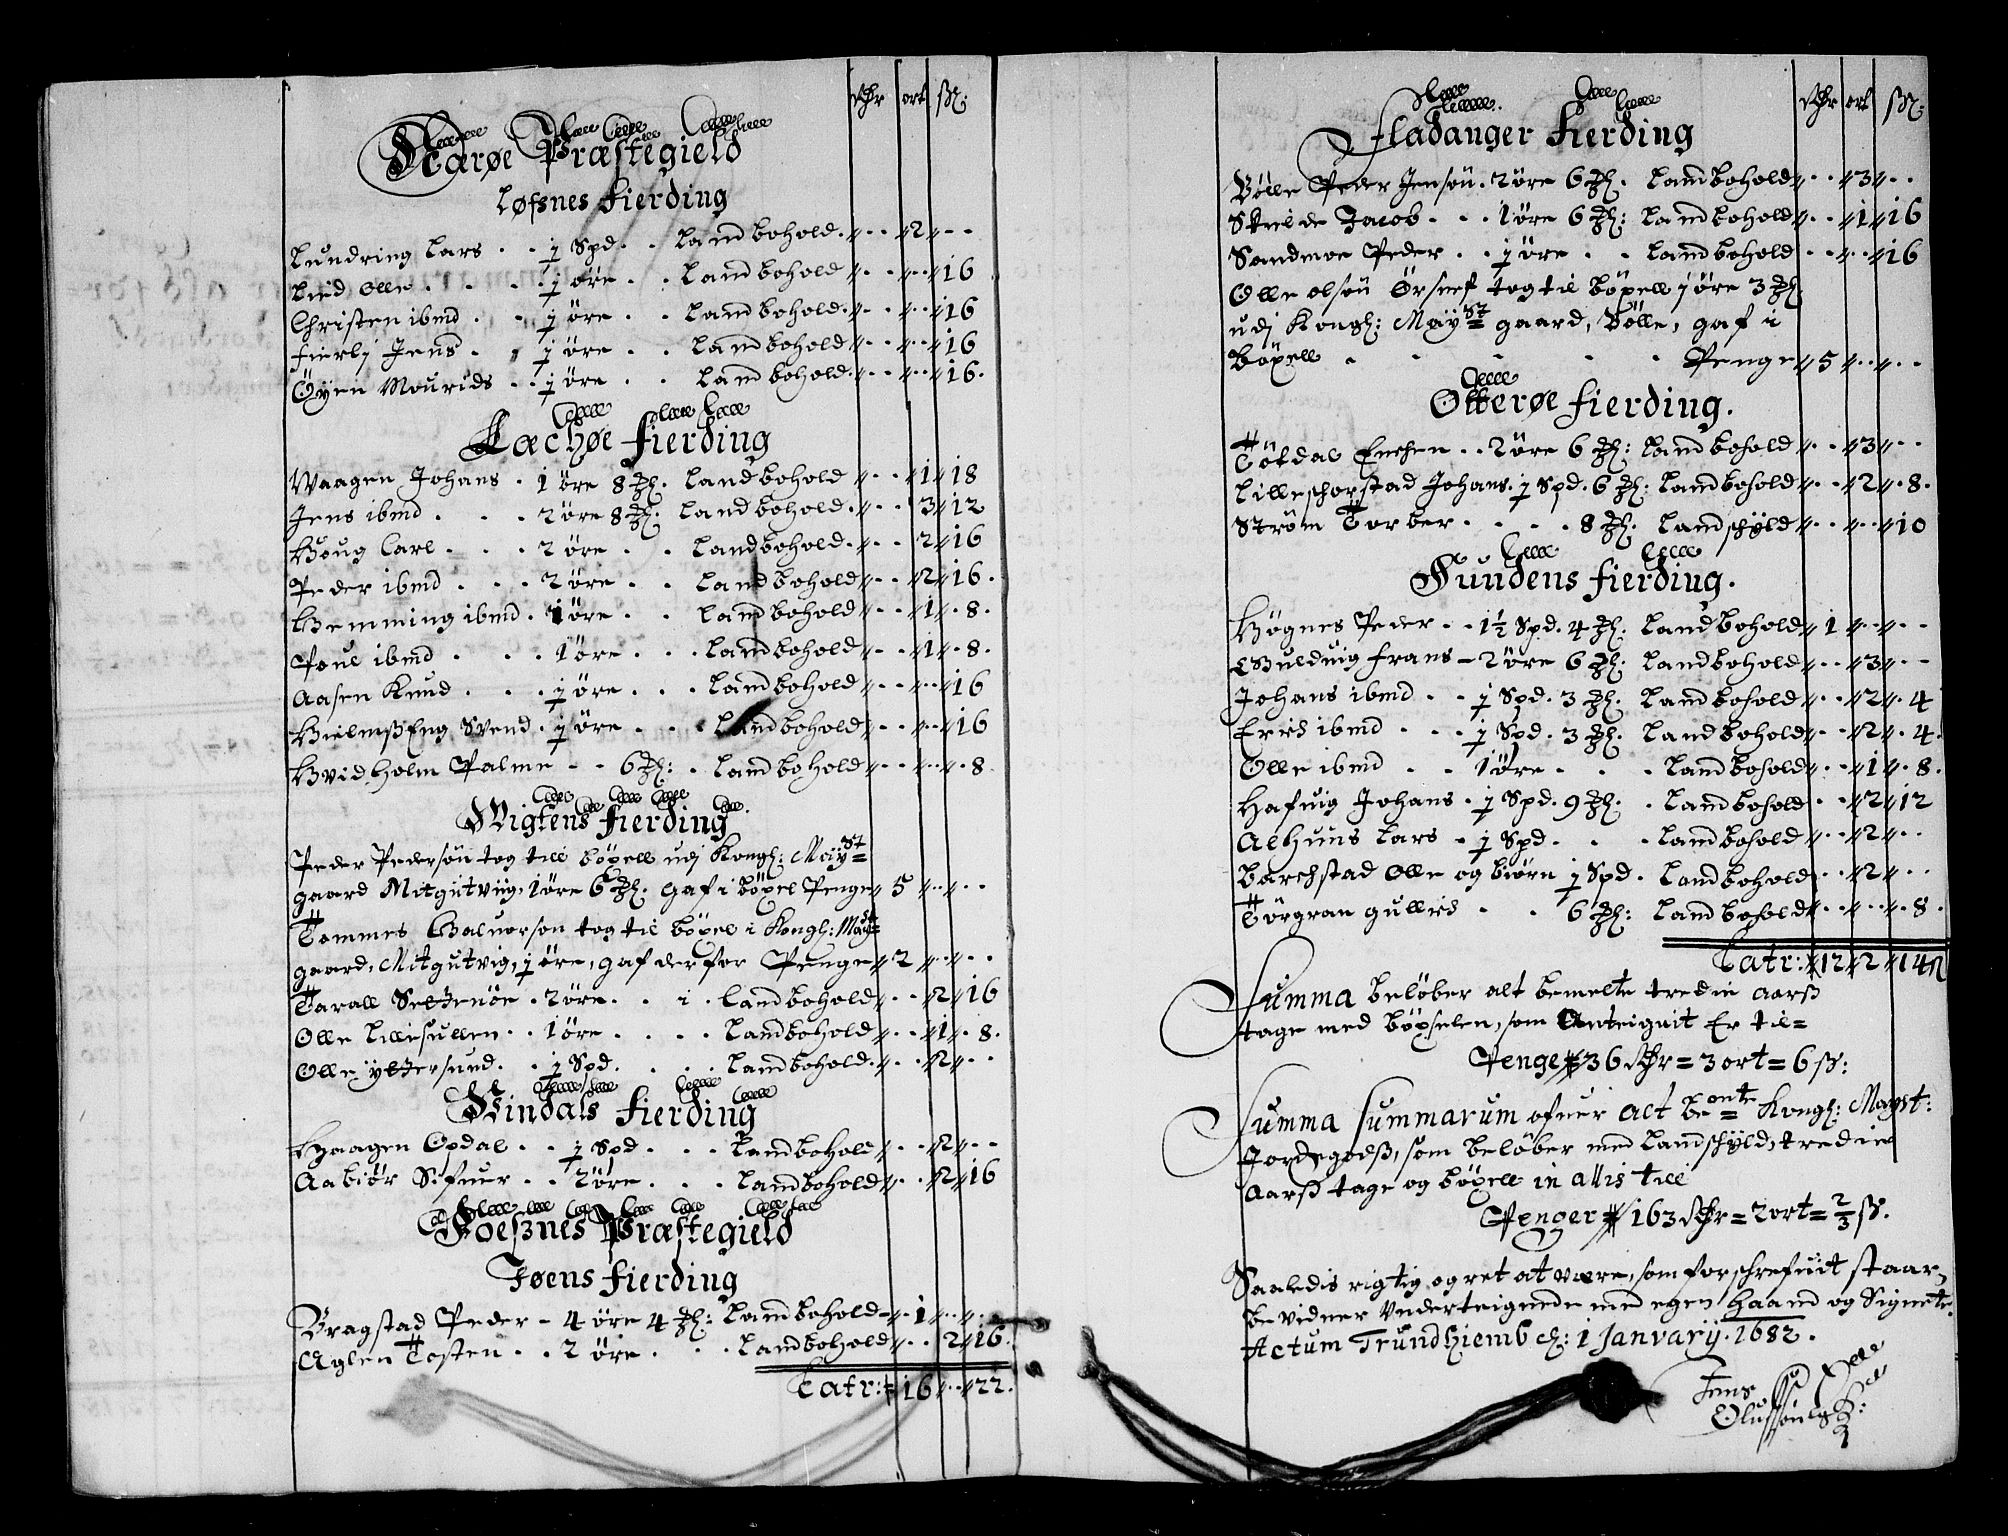 Rdr ort ß:
Nærøe Præstegield
Løfsnes fierding
Lundring Lars . . j Spd. . Landbohold. . . 2 . .
Lied Olle . . . . j øre . . Landbohold . . . . 16
Christen ibmd . . j øre . . Landbohold . . . . 16
fierli Jens . . j øre . . Landbohold . . . . 16
Öyen Mourids . . j øre . . Landbohold . . . . 16.
Lechøe fierding
Waagen Johans . 1 øre 8 . Landbohold . . 1 18
Jens ibmd . . . 2 øre 8 . Landbohold . . 3 12
Houg Carl . . . 2 øre . . Landbohold . . 2 16
Peder ibmd . . . 2 øre . . Landbohold . . 2 16.
Hemming ibmd . 1 øre . . Landbohold . . 1 . 8.
Poul ibmd . . . 1 øre . . Landbohold . . 1 . 8.
Aasen Knud . . . j øre . . . Landbohold . . . . 16
Hielmß Eng Svend . j øre . . . Landbohold . . . . 16
Hvidholm Palme . . 6 : . Landbohold . . . . 8
Wigtens fierding
Peder Pedersøn tog till böxell udj Kongl: Mayst
gaard Mitgutviig, 1 øre 6 . gaf i böxel Penge 5 . . . .
Tommes Haluorson tog til böxel i Kongl: Mayst
gaard, Mitgutvig, j øre, gaf derfor Penge 2 . . . .
Tarall Setternöe . 2 øre . . . Landbohold . . 2 16
Olle Lillesullen . . 1 øre . . . . Landbohold . . 1 . 8.
Olle yttersund . . j Spd. . . . Landbohold . . 2 . .
Bindals fierding
Haagen Opdal . . j Spd . . . Landbohold . . 2 . .
Aabiör Sifuer . . 2 øre . . . Landbohold . . 2 16
Foeßnes Præstegield
Jøens fierding
Bragstad Peder - 4 øre 4 : Landbohold . 1 . . .
Aglen Tosten . . 2 øre . . . Landbohold . . 2 16.
Latr: 16 . . 22.
Rdr ort ß:
Fladanger fierding
Bölle Peder Jensøn . 2 øre 6 . Landbohold . . 3 . .
Skielde Jacob . . . 1 øre 6 : Landbohold . . 1 16
Sandmoe Peder . . j øre . . Landbohold . . . . 16
Olle olsøn Örsnes tog til böxell j øre 3
udj Kongl: Mayst gaard, Bölle, gaf i
böxell . . . . . Penge 5 . . . .
Otterøe fierding.
Tötdal Enchen . . 2 øre 6 : Landbohold . . 3 . .
Lillechorstad Johans . j Spd. 6 : Landbohold . . 2 . 8.
Ström Torber . . . . 8 . Landschyld . . . . 10
Sundens fierding.
Högnes Peder . . 1½ Spd. 4 : Landbohold 1 . . . .
Gulduig frans - 2 øre 6 . Landbohold . . 3 . .
Johans ibmd . . j Spd. 3 . Landbohold . . 2 . 4
Erics ibmd . . . j Spd. 3 . Landbohold . . 2 . 4.
Olle ibmd . . 1 øre . . . Landbohold . . 1 . 8.
Hafuig Johans . j Spd. 9 . . Landbohold . . 2 12
Alhuus Lars . j Spd . . . Landbohold . . 2 . .
Barchstad Olle og biørn j Spd . Landbohold . . 2 . .
Törgran gullics . . 6 : Landbohold . . . . 8.
Latr: 12 2 14
Summa beløber alt bemelte tredie aarß
tage med böxelen, som Anteignit Er til=
Penge 36 Rdr = 3 ort = 6 ß:
Summa Summarum ofuer alt bemte Kongl: Mayst:
Jordegodß, som beløber med Landschyld, tredie
Aarß tage og böxell in allis till
Penger 163 Rdr = 2 ort = 2/3 ß.
Saaledis rigtig og ret at være, som forschrefuit staar,
bevidner Underteignede med egen Haand og Signete.
Actum Trundhiemb d: 1 Janvarij. 1682.
Jens
Olufsøn